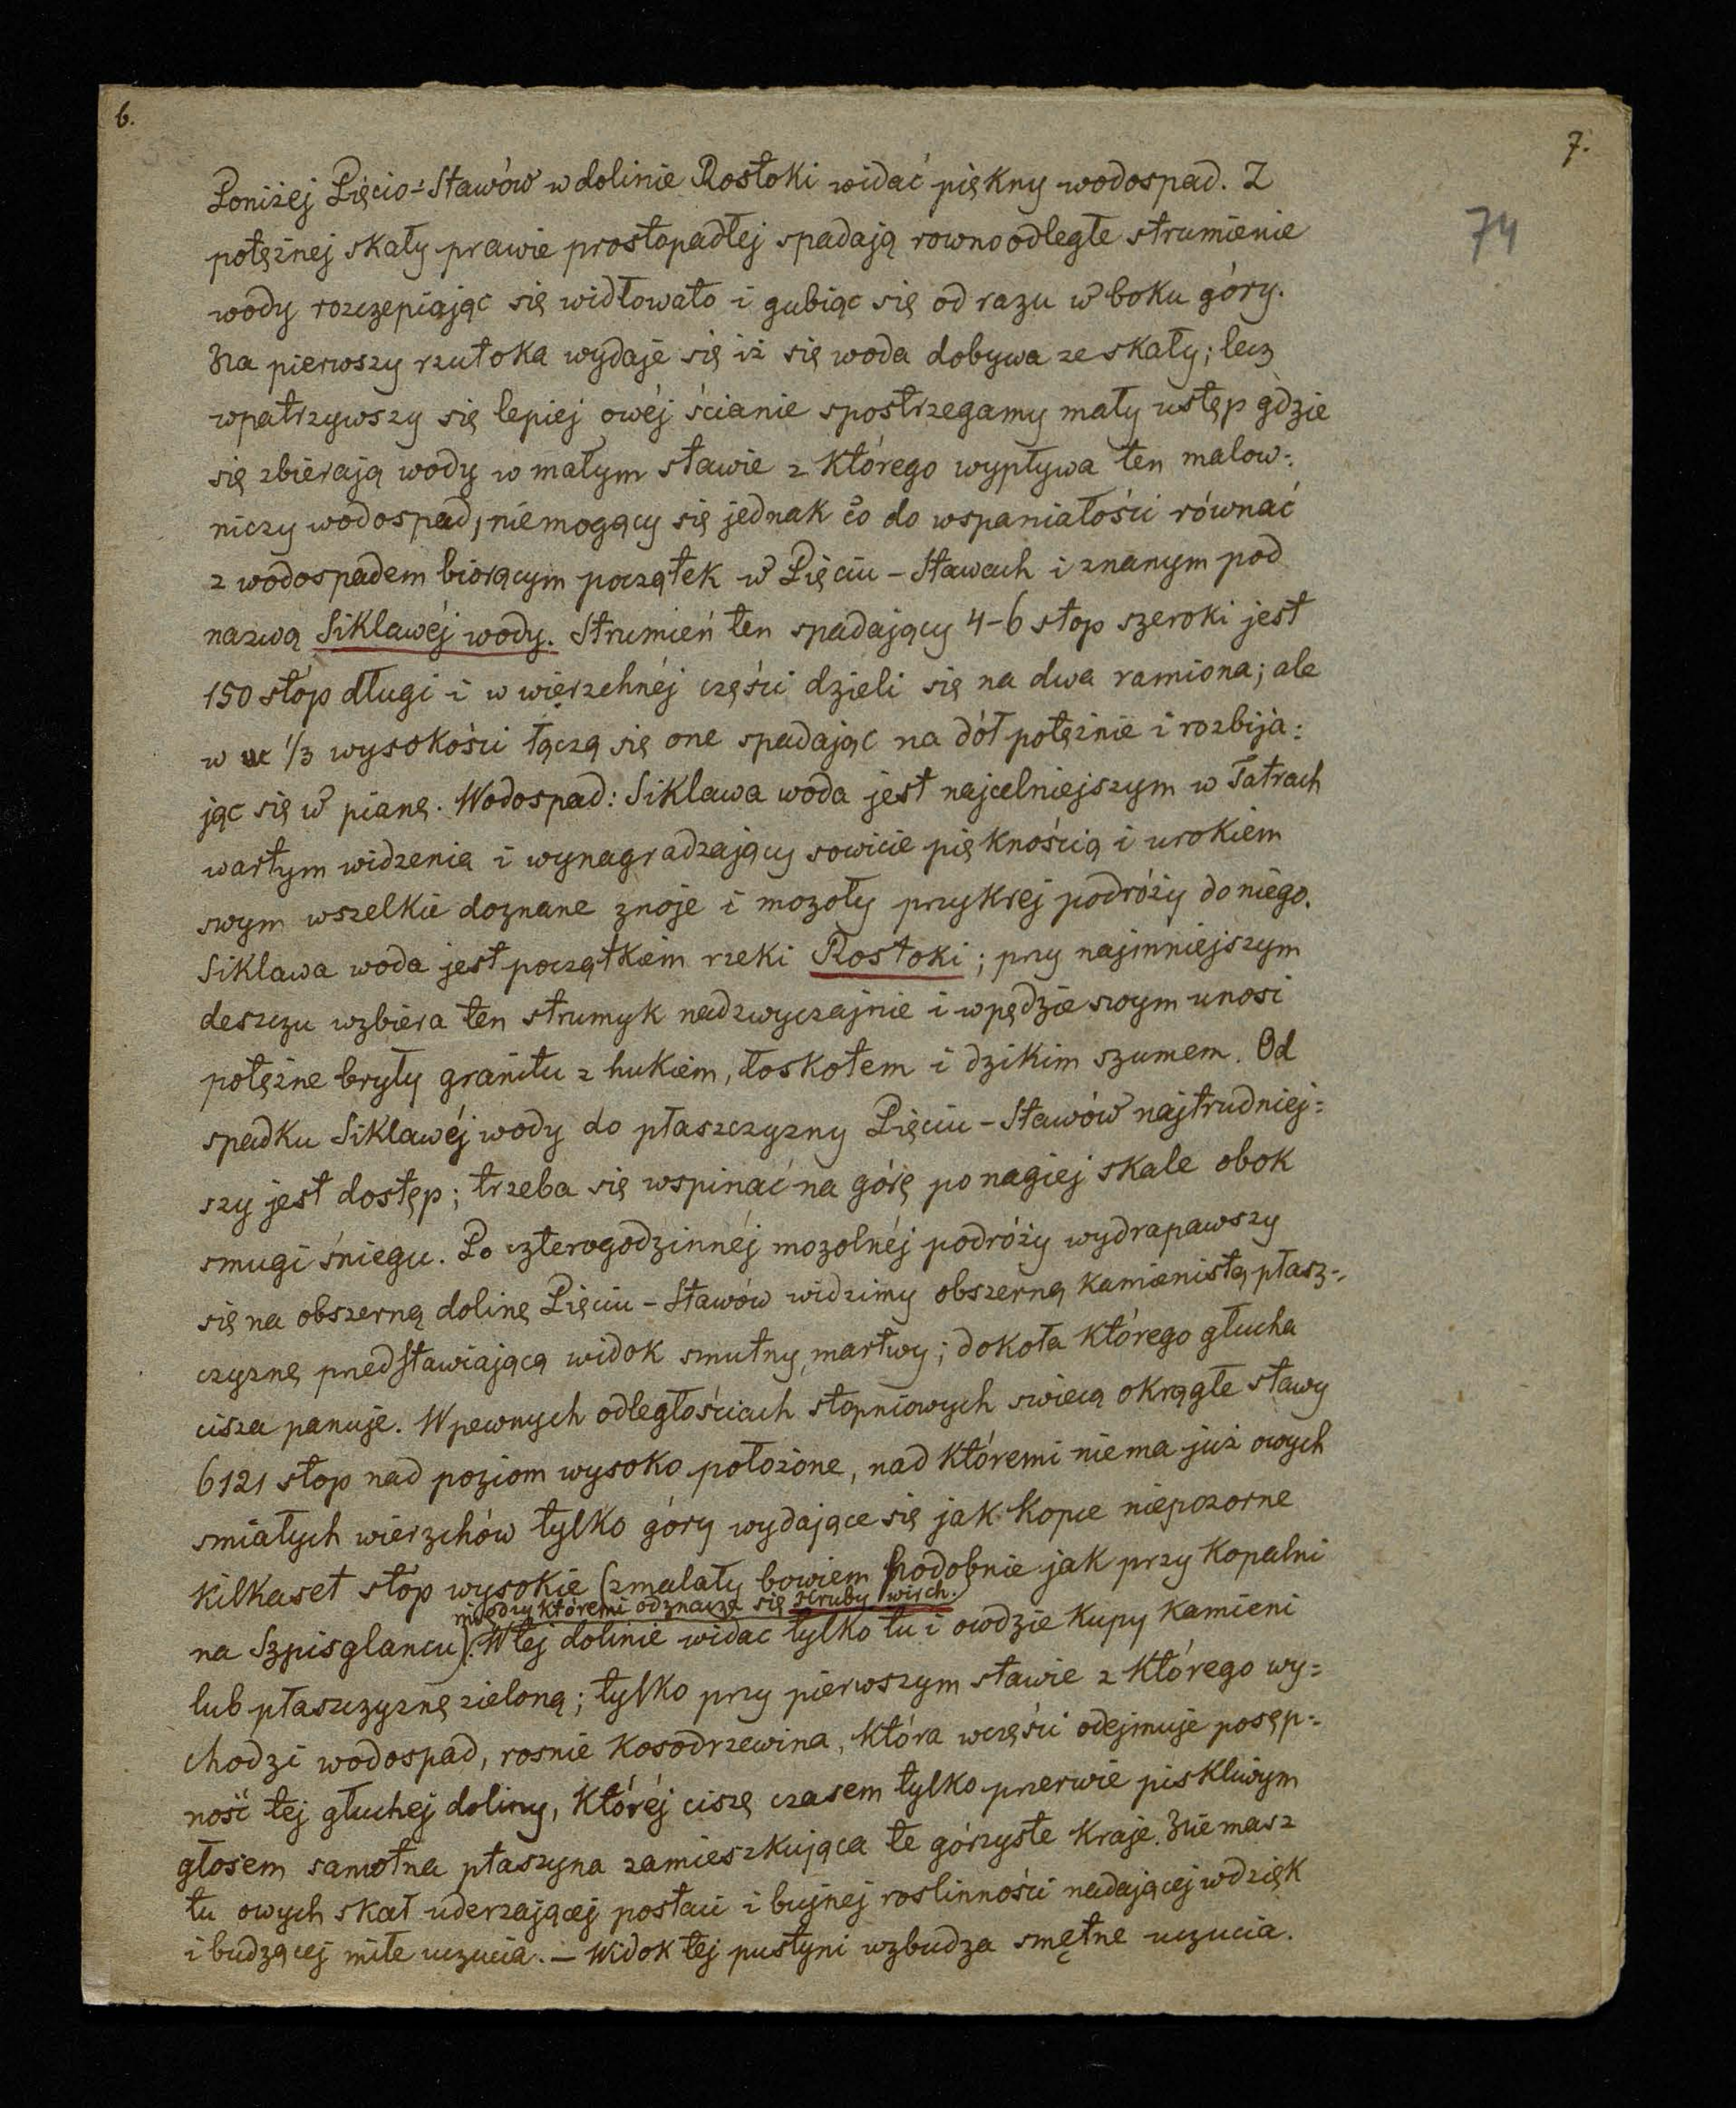 6.
7.
74
Poniżej Pięcio-Stawów w dolinie Rostoki widać piękny wodospad. Z
potężnej skały prawie prostopadłej spadają rownoodległe strumienie
wody rozczepiając się widłowato i gubiąc się od razu w boku góry.
Na pierwszy rzut oka wydaje się iż się woda dobywa ze skały; lecz
wpatrzywszy się lepiej owéj ścianie spostrzegamy mały ustęp gdzie
się zbierają wody w małym stawie z którego wypływa ten malow=
niczy wodospad, niemogący się jednak co do wspaniałości równać
z wodospadem biorącym początek w Pięciu-Stawach i znanym pod
nazwą Siklawéj wody. Strumień ten spadający 4-6 stop szeroki jest
150 stóp długi i w wierzchnéj części dzieli się na dwa ramiona; ale
w 1/3 wysokości łączą się one spadając na dół potężnie i rozbija=
jąc się w pianę. Wodospad: Siklawa woda jest najcelniejszym w Tatrach
wartym widzenia i wynagradzający sowicie pięknością i urokiem
swym wszelkie doznane znoje i mozoły przykrej podróży do niego.
Siklawa woda jest początkiem rzeki Rostoki; przy najmniejszym
deszczu wzbiera ten strumyk nadzwyczajnie i w pędzie swym unosi
potężne bryły granitu z hukiem, łoskotem i dzikim szumem. Od
spadku Siklawéj wody do płaszczyzny Pięciu-Stawów najtrudniej=
szy jest dostęp; trzeba się wspinać na górę po nagiej skale obok
smugi śniegu. Po czterogodzinnéj mozolnéj podróży wydrapawszy
się na obszerną dolinę Pięciu-Stawów widzimy obszerną kamienistą płasz=
czyznę przedstawiającą widok smutny, martwy; dokoła którego głucha
cisza panuje. W pewnych odległościach stopniowych swiecą okrągłe stawy
6121 stop nad poziom wysoko położone, nad któremi niema już owych
smiałych wierzchów tylko góry wydające się jak kopce niepozorne
kilkaset stóp wysokie (zmalały bowiem podobnie jak przy kopalni
między któremi odznacza się Hruby wirch.
na Szpisglancu). W tej dolinie widac tylko tu i owdzie kupy kamieni
lub płaszczyznę zieloną; tylko przy pierwszym stawie z którego wy=
chodzi wodospad, rosnie kosodrzewina, która w części odejmuje posęp=
ność tej głuchej doliny, któréj ciszę czasem tylko przerwie piskliwym
głosem samotna ptaszyna zamieszkująca te górzyste kraje. Niemasz
tu owych skał uderzającej postaci i bujnej roslinności nadającej wdzięk
i budzącej miłe uczucia. – Widok tej pustyni wzbudza smętne uczucia.